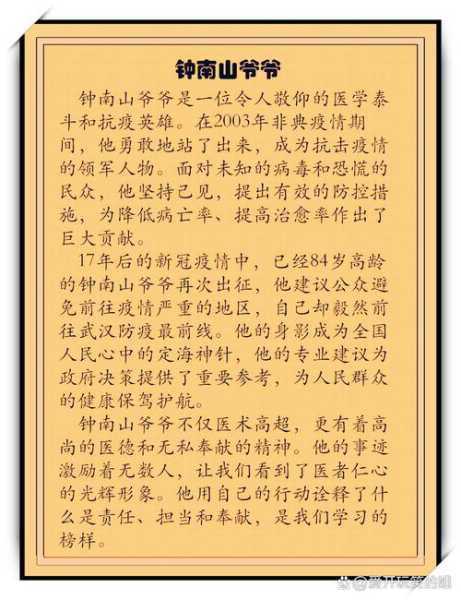 钟南山爷爷
钟南山爷爷是一位令人敬仰的医学泰
斗和抗疫英雄。在2003年非典疫情期
间，他勇敢地站了出来，成为抗击疫情
的领军人物。面对未知的病毒和恐慌的
民众，他坚持己见，提出有效的防控措
施，为降低病亡率、提高治愈率作出了
巨大贡献。
17年后的新冠疫情中，已经84岁高龄
的钟南山爷爷再次出征，他建议公众避
免前往疫情严重的地区，自己却毅然前
往武汉防疫最前线。他的身影成为全国
人民心中的定海神针，他的专业建议为
政府决策提供了重要参考，为人民群众
的健康保驾护航。
钟南山爷爷不仅医术高超，更有着高
尚的医德和无私奉献的精神。他的事迹
激励着无数人，让我们看到了医者仁心
的光辉形象。他用自己的行动诠释了什
么是责任、担当和奉献，是我们学习的
榜样。